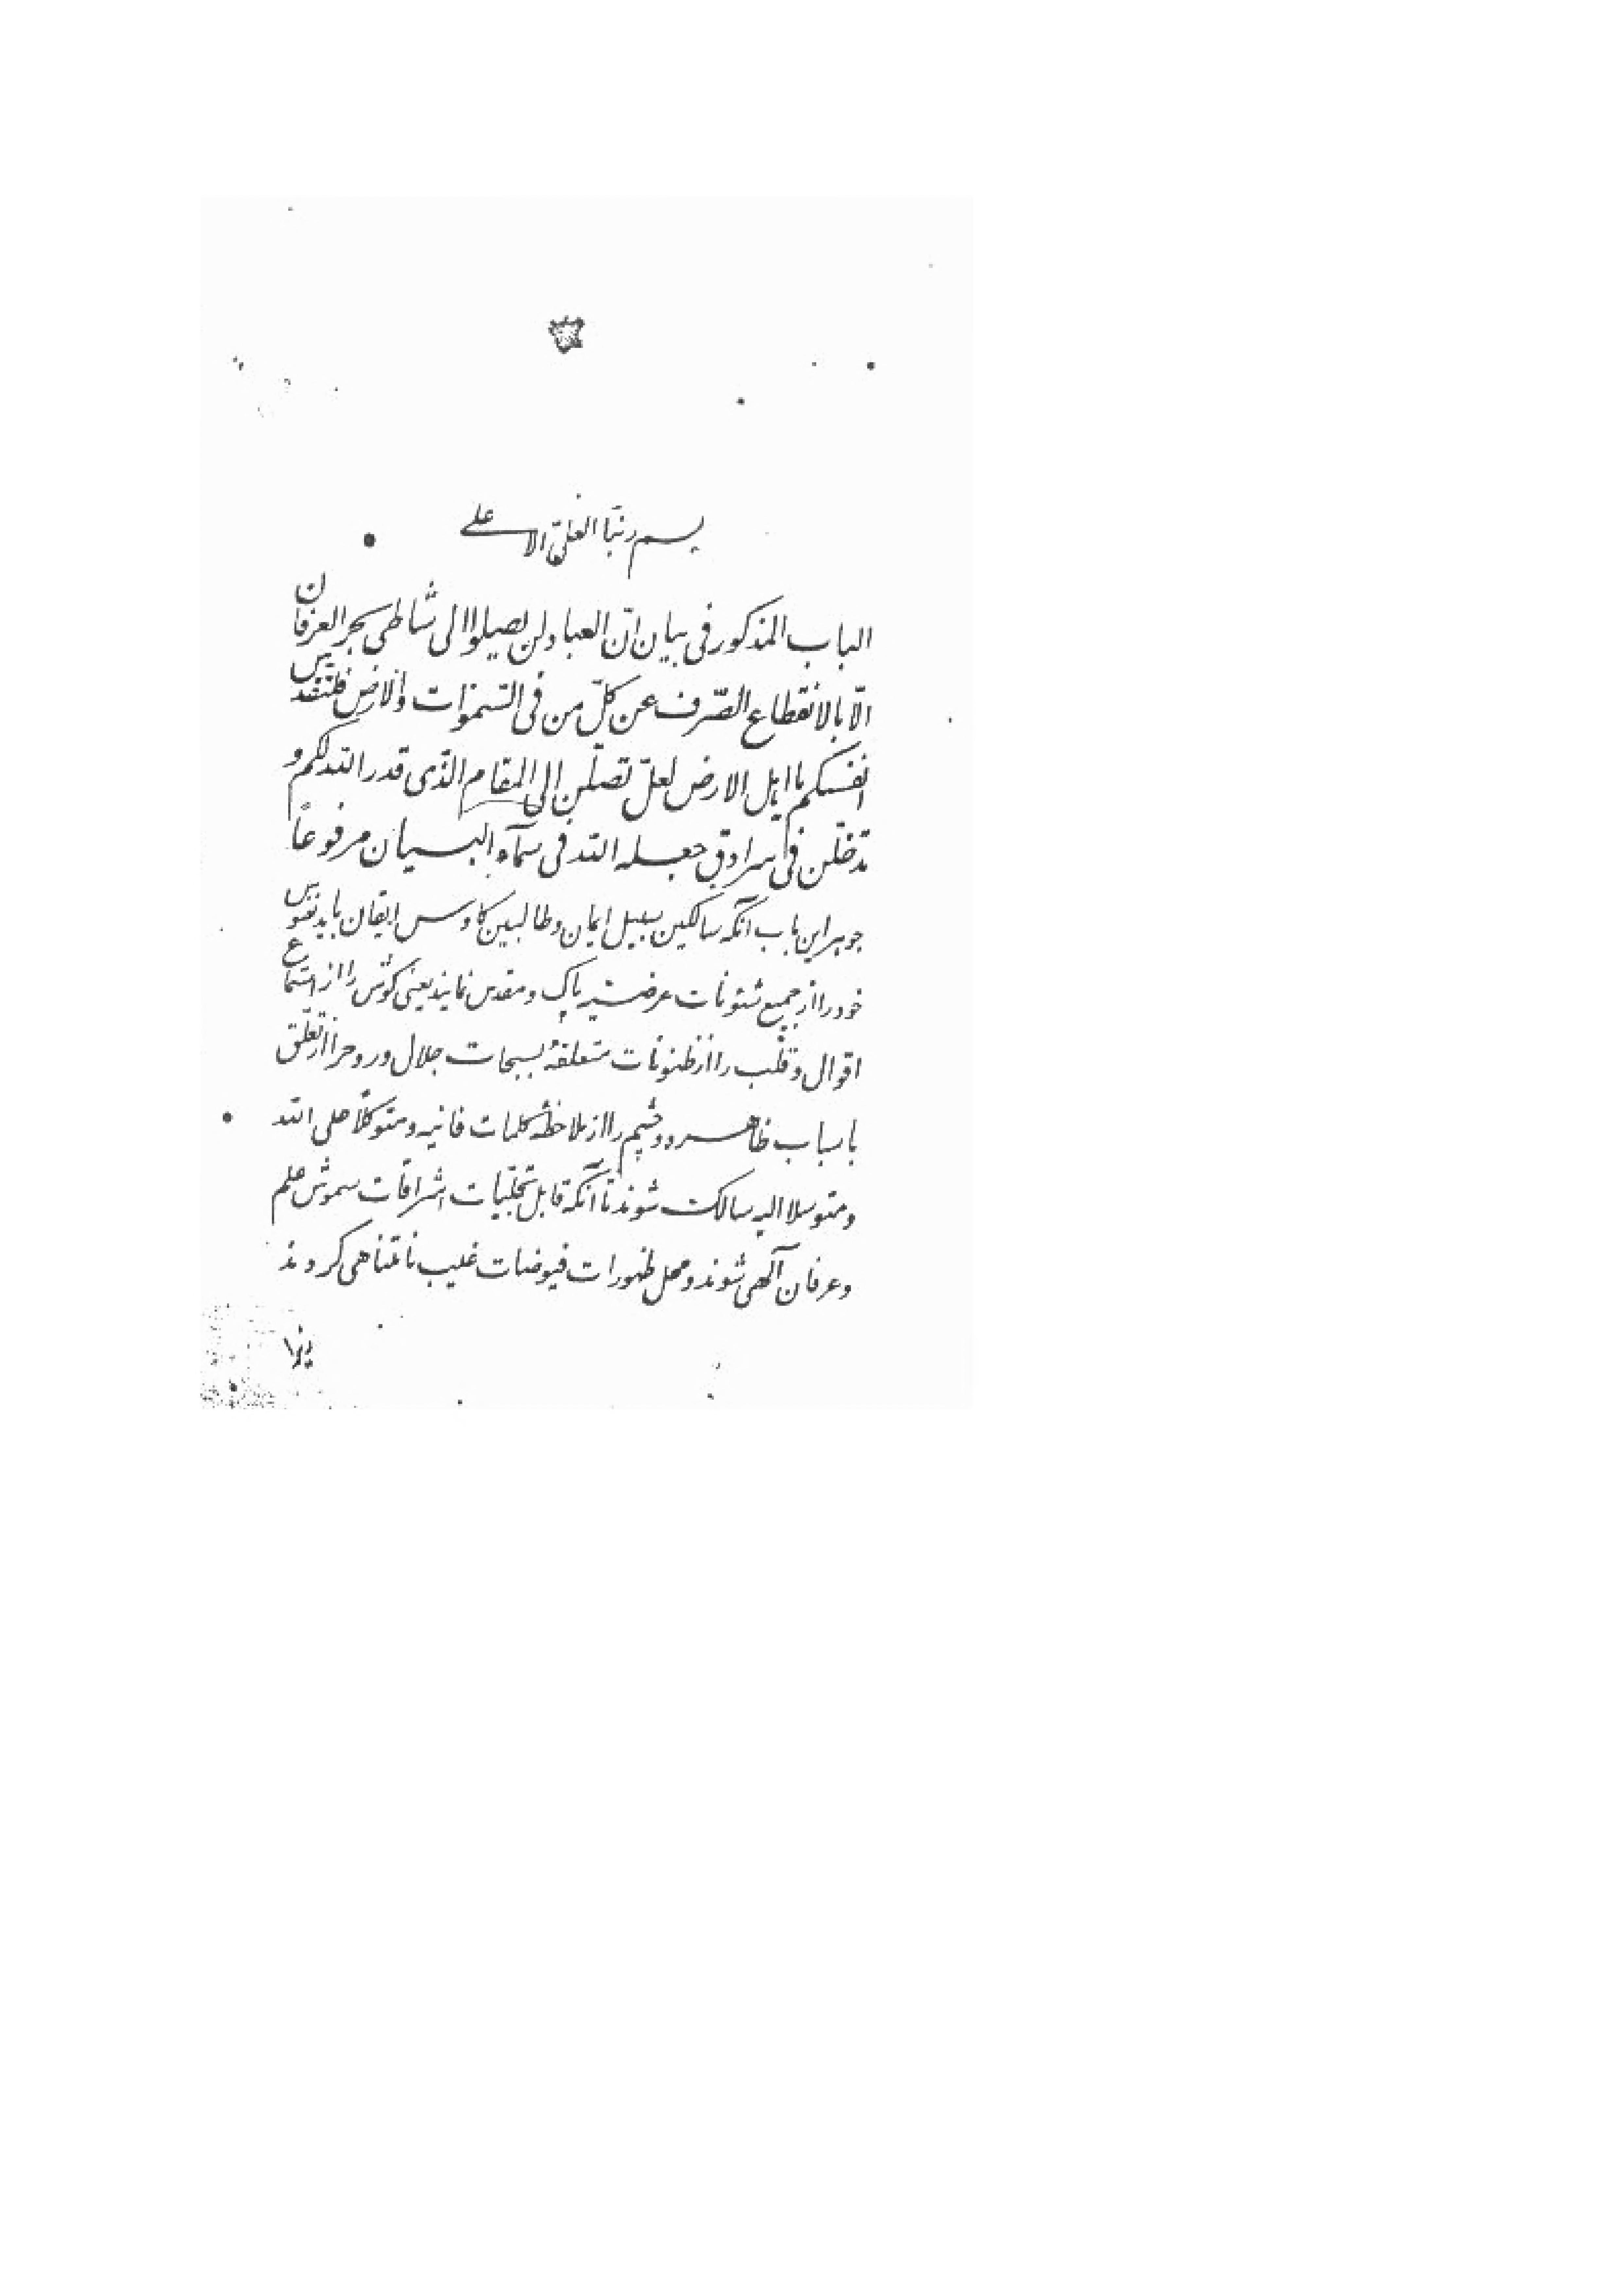 بسم ربنا العلیّ الاعلی
الباب المذکور فی بیان انّ العباد لن یصلوا الی شاطی بحر العرفان
الّا بالانقطاع الصّرف عن کلّ من فی السّموات والارض فلتقدّسنّ
انفسکم یا اهل الارض لعلّ تصلنّ الی المقام الّذی قدر الله لکم و
تدخلنّ فی سرادق جعله الله فی سمآء البیان مرفوعاً
جوهر این باب آنکه سالکین سبیل ایمان و طالبین کاوس ایقان باید نفوس
خود را از جمیع شئونات عرضیه پاک و مقدس نمایند یعنی کوش را از استماع
اقوال و قلب را از ظنونات متعلقهٔ بسبحات جلال و روح را از تعلّق
باسباب ظاهره و چشم را از ملاحظهٔ کلمات فانیه و متوکّلاً علی الله
و متوسلا الیه سالک شوند تا آنکه قابل تجلّیات اشراقات شموش علم
و عرفان الٓهی شوند و محل ظهورات فیوضات غیب نامتناهی کردند
زیرا